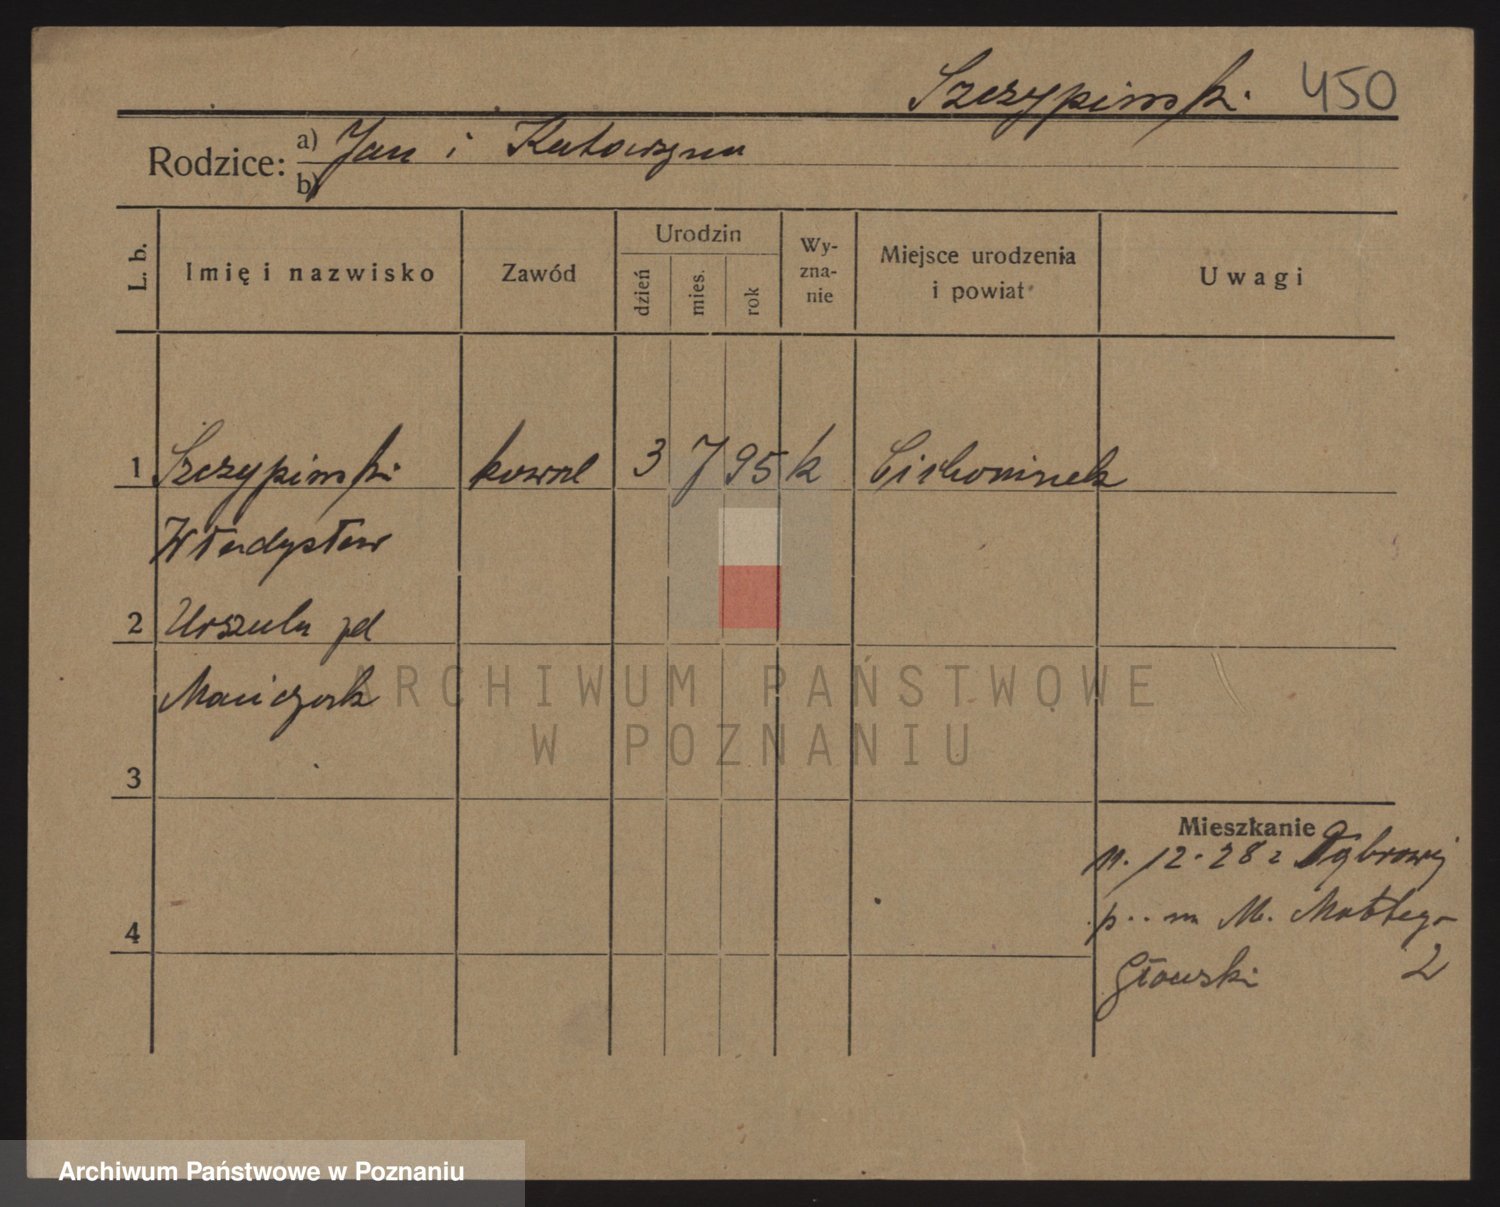 Szczypiński. 450
Rodzice: a) Jan i Katarzyna
b)
L. b. Imię i nazwisko Zawód Urodzin dzień mies. rok Wy-zna-nie Miejsce urodzenia i powiat Uwagi
1 Szczypiński kowal 3 7 95 k
Władysław
2 Urszula zd
Mańczak
3
Mieszkanie
11. 12. 28 z Dąbrowy
p. M.
4
2
ARCHIWUM PAŃSTWOWE
W POZNANIU
Archiwum Państwowe w Poznaniu